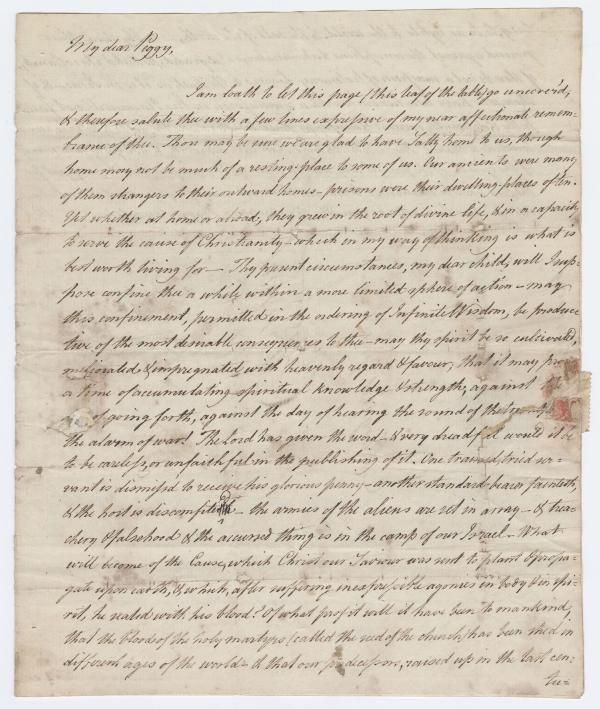 My dear Peggy,
I am loath to let this page (this leaf of the table) go uncover'd,
& therefore salute thee with a few lines expressive of my near affectionate remem-
brance of thee. Thou may be sure we are glad to have Sally home to us, though
home may not be much of a resting-place to some of us. Our ancients were many
of them strangers to their outward homes – prisons were their dwelling-places often.
Yet whether at home or abroad, they grew in the root of divine life, & in a capacity
to serve the cause of Christianity – which in my way of thinking is what is
best worth living for – Thy present circumstances, my dear child, will I sup=
pose confine thee a while within a more limited sphere of action – may
this confinement, permitted in the ordering of Infinite Wisdom, be produc
tive of the most desirable consequences to thee – may thy spirit be so cultivated,
meliorated & impregnated with heavenly regard & favour, that it may
a time of accumulating spiritual knowledge & strength, against
of going forth, against the day of hearing the sound of the
the alarm of war! The Lord has given the word – & very dreadful would it be
to be careless, or unfaithful in the publishing of it. One trained, tried ser-
vant is dismiss'd to receive his glorious penny – another standard-bearer fainteth,
& the host is discomfited – the armies of the aliens are set in array – & trea=
chery & falsehood & the accursed thing is in the camp of our Israel – What
will become of the Cause, which Christ our Saviour was sent to plant & propa=
gate upon earth, & which, after suffering inexpressible agonies in body & in spi=
rit, he sealed with his blood? Of what profit will it have been to mankind,
that the blood of the holy martyrs (called the seed of the church) has been shed in
different ages of the world – & that our predecessors, raised up in the last cen=
tu=